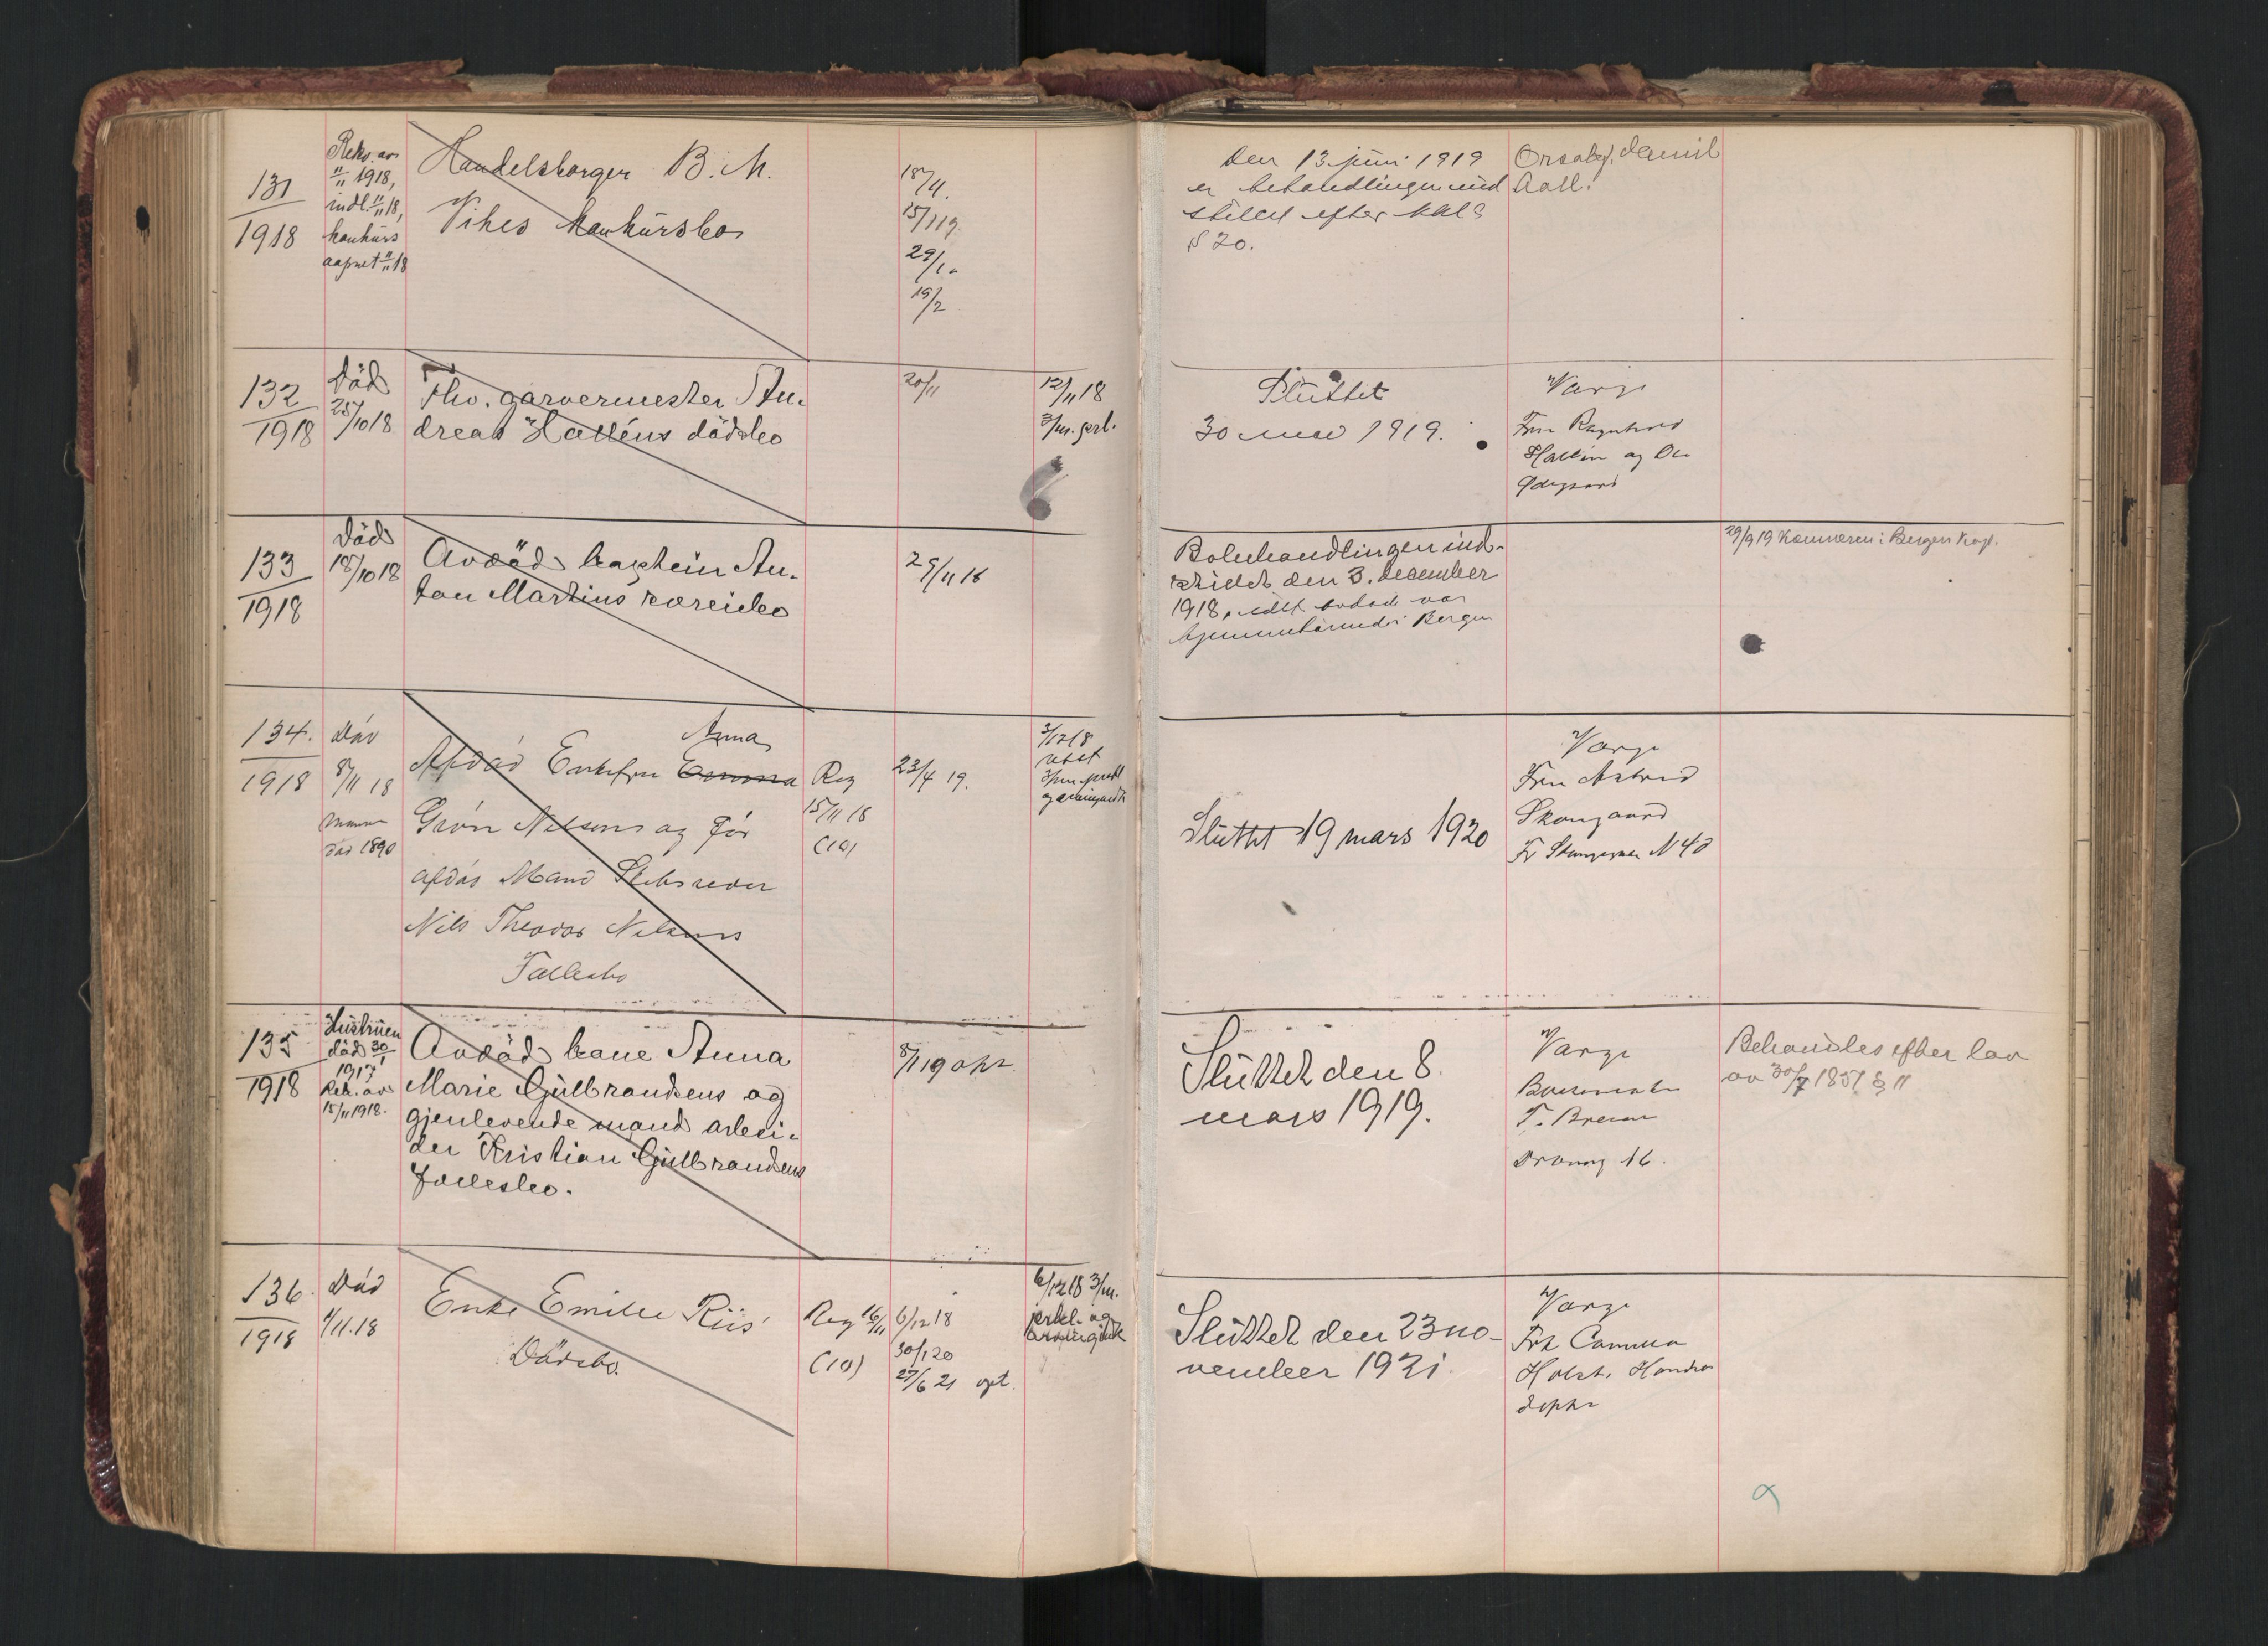 131
1918
Rekv. av
11/11 1918,
indl. 11/11 18,
konkurs
aapnet 11/11 18
Handelsborger B. M.
Vikes konkursbo
18/11.
15/1 19
29/1
19/2
Den 13 juni 1919
er behandlingen ind
stillet efter
§ 20.
Orsakf.
Aall.
132
1918
Död
25/10 18
Fhv. garvermester An-
dreas Halléns dödsbo
20/11
12/11 18
3/m. prkl.
Sluttet
30 mai 1919.
Værge
Fru Ragnhild
Hallén og Ole
Ødegaard
133
1918
Död
18/10 18
Avdöd kaptein An-
ton Martins
29/11 18
Bobehandlingen ind-
stillet den 3. december
1918, idet avdøde var
hjemmehørende i Bergen
29/9 19 Kæmneren i Bergen
134.
1918
Död
8/11 18
Manne
död 1890
Anna
Afdöd Enkefru Emma
Grøn Nilsens og før
afdöd Mand Skibsreder
Nils Theodor Nilsens
Fællesbo
Reg
15/11 18
(10)
23/4 19.
3/12 18
3/m prkl
Sluttet 19 mars 1920
Værge
Fru Astrid
Skougaard
Fr Stangsgaten N 40
135
1918
Hustruen
död 30/1
1917
Rek. av
15/11 1918.
Avdöd kone Anna
Marie Gulbrandsens og
gjenlevende mand arbei-
der Kristian Gulbrandsens
fællesbo.
8/1 19
Sluttet den 8
mars 1919.
Værge
T.
Dronng 16.
Behandles efter lov
av 30/7 1851 § 11
136.
1918
Död
1/11.18
Enke Emilie Riis'
Dödsbo.
Reg 16/11
(10)
6/12 18
30/1 20
27/6 21 opt.
6/12 18 3/m.
prkl. og
Sluttet den 23 no-
vember 1921.
Værge
Frk Camilla
Holst.